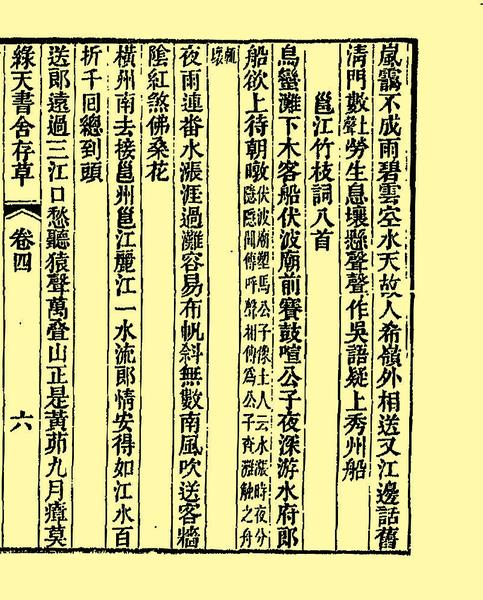 嵐靄不成雨碧雲空水天故人希嶺外相送又江邊話舊
清門數上聲勞生息壤懸聲聲作吳語疑上秀州船
邕江竹枝詞八首
烏蠻灘下木客船伏波廟前賽鼓喧公子夜深游水府郎
船欲上待朝暾伏波廟塑馬公子像土人云水漲時夜分隱隱聞傳呼聲相傳爲公子灘觸之舟
輒壞
夜雨連番水漲涯過灘容易布帆斜無數南風吹送客牆
陰紅煞佛桑花
橫州南去接邕州邕江麗江一水流郎情安得如江水百
折千回總到頭
送郎遠過三江口愁聽猿聲萬疊山正是黃茆九月瘴莫
綠天書舍存草 卷四 六